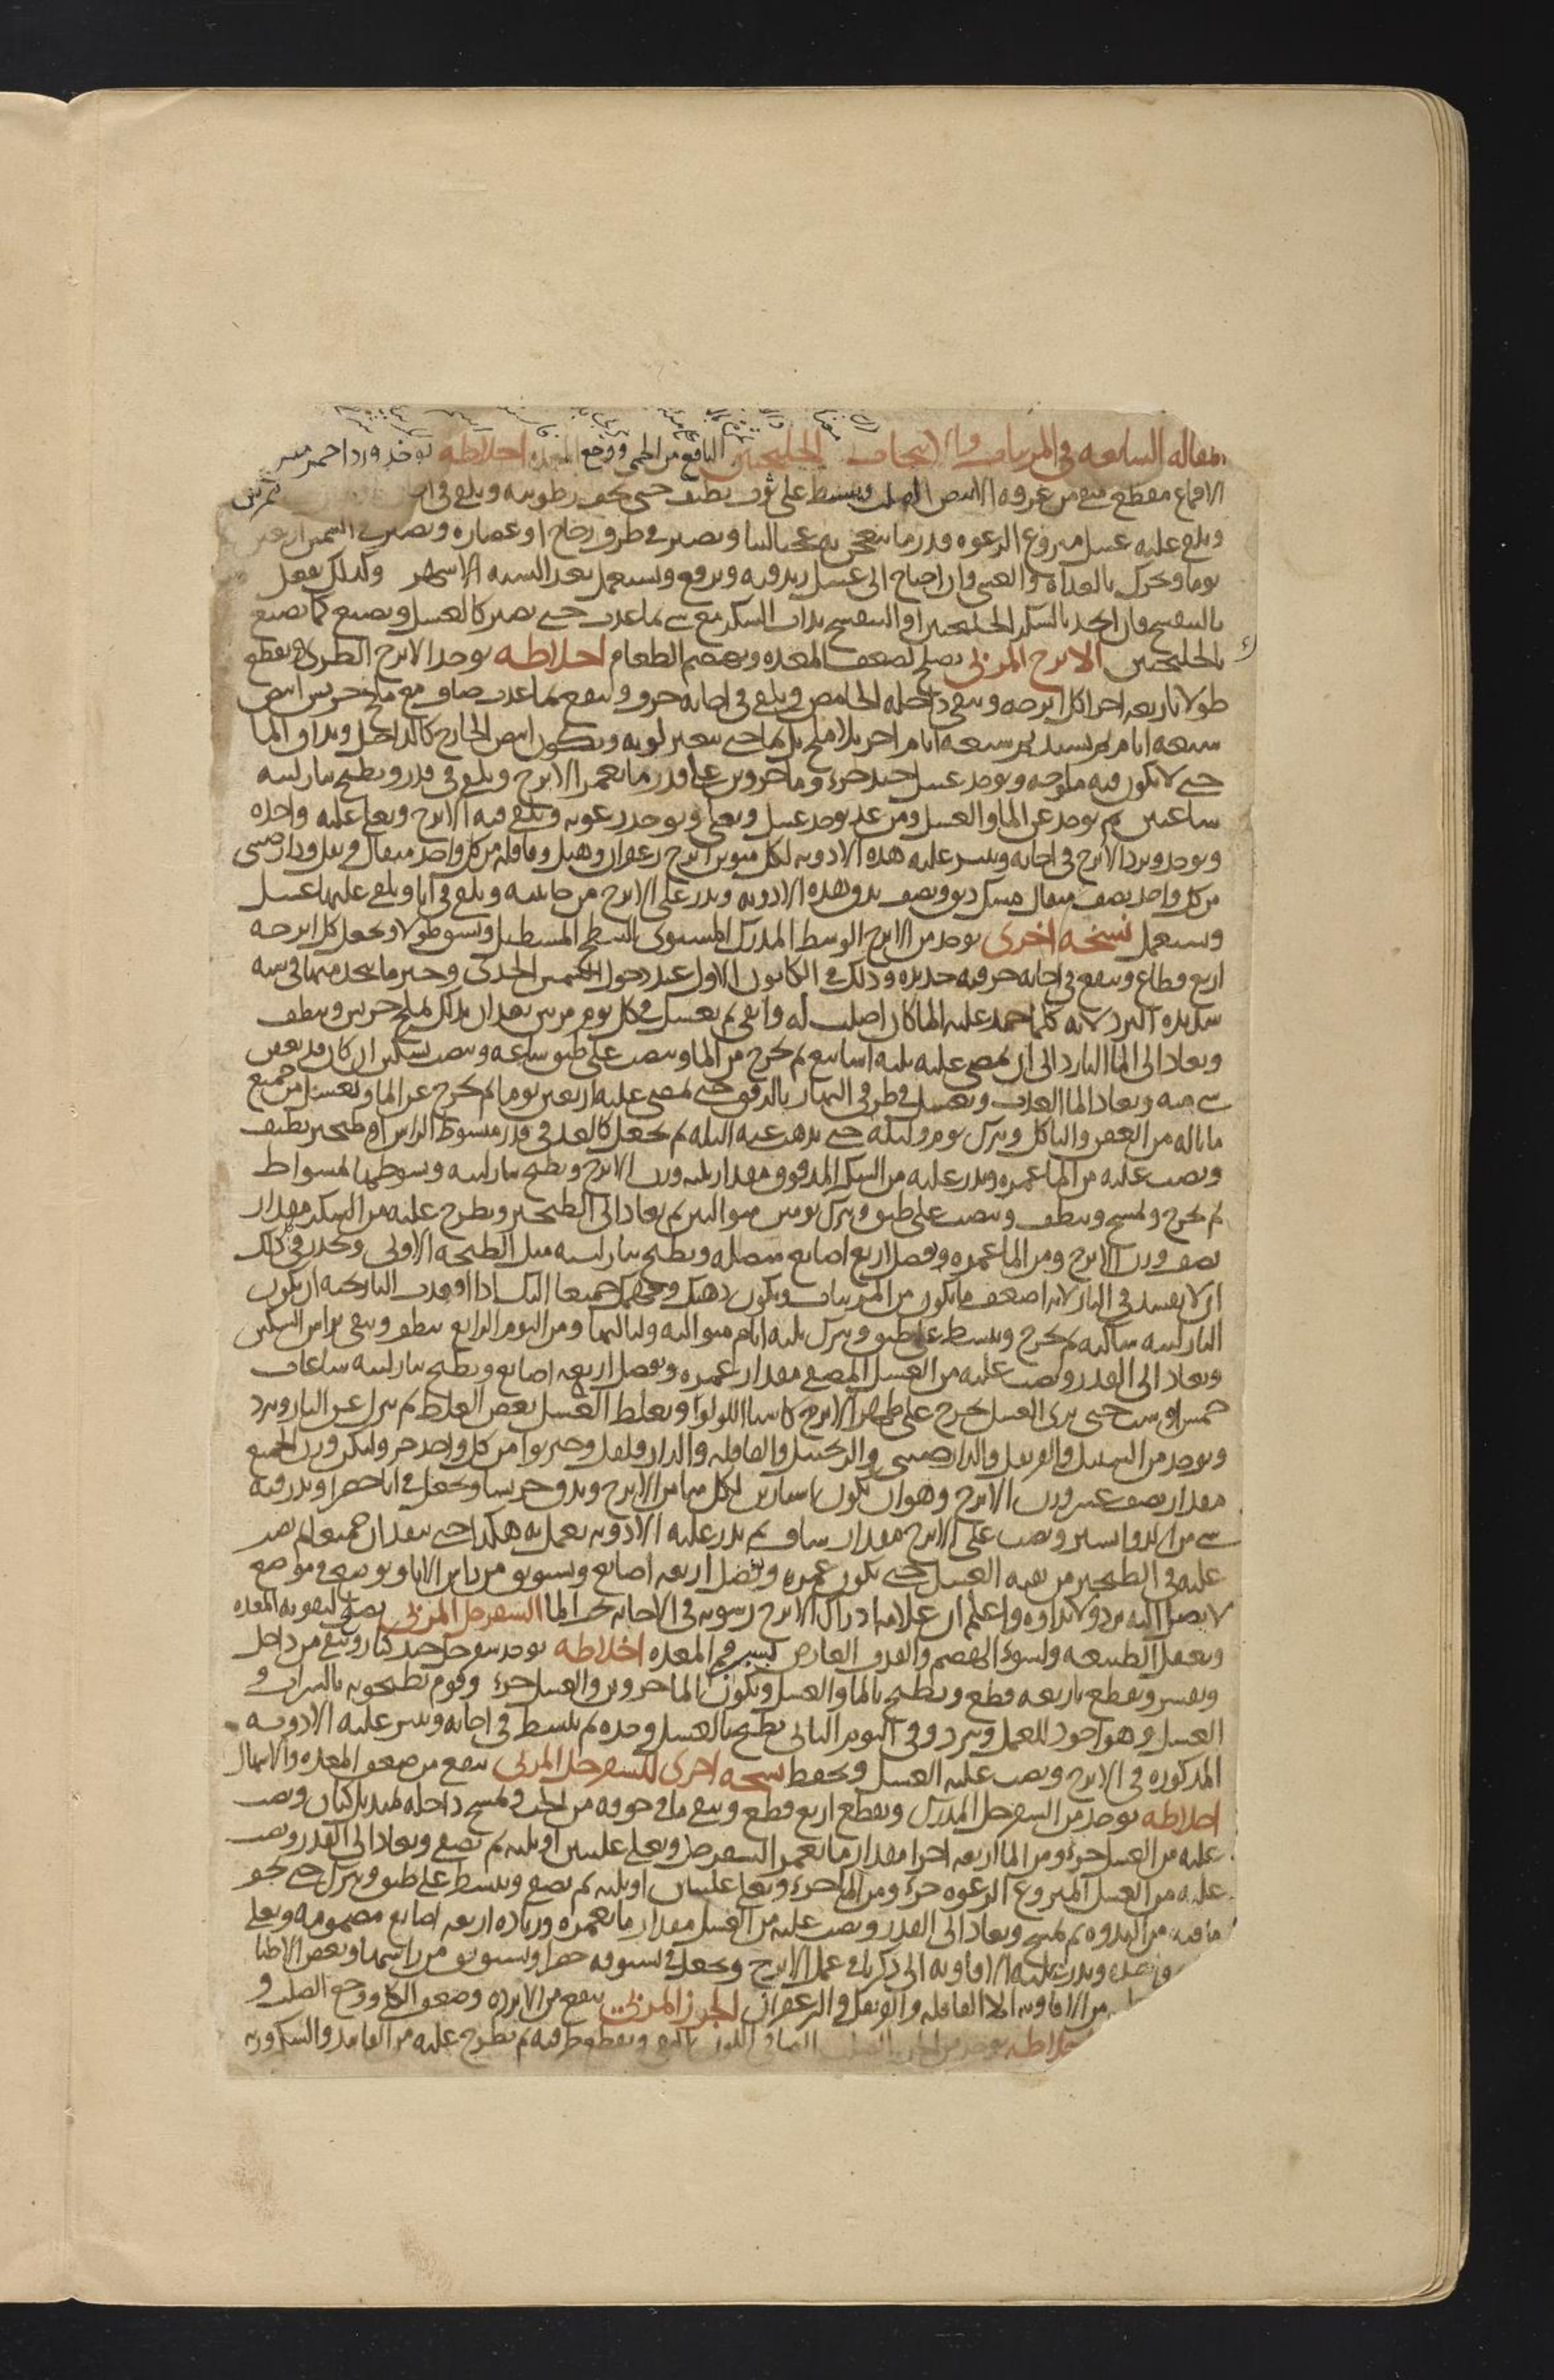 المقاله السابعه في المربيات والانبجات الجلنجبين النافع من الحمى ووجع المعده اخلاطه يوخذ ورد احمر
الاقماع مقطع منقى من عروقه الابيض الصلب ويبسط على ثوب نظيف حتى تجف رطوبته ويلقى في
ويلقى عليه عسل منزوع الرغوه قدر ما ينعجن به عجنا لينا ويصير في ظرف زجاج او غضاره ويصير في الشمس اربعين
يوما ويحرك بالغداة والعشي وان احتاج الى عسل زيد فيه ويرفع ويستعمل بعد السته الاشهر وكذلك يفعل
بالبنفسج فان اتخذ بالسكر الجلنجبين او البنفسج يذاب السكر مع شى ما عذب حتى يصير كالعسل ويصنع كما يصنع
بالجلنجبين الاترج المربى يصلح لضعف المعده ويهضم الطعام اخلاطه يوخذ الاترج الطرى ويقطع
طولا باربعه اجزا كل اترجه وينقى داخله الحامض ويلقى في اجانه خزف وينقع بما عذب صاف مع ملح جريش ابيض
سبعه ايام ثم يستبدل ثم سبعه ايام اخر بلا ملح بل بما حتى يتغير لونه ويكون ابيض الخارج كالداخل ويذاق الما
حتى لا يكون فيه ملوحه ويوخذ عسل جيد جزء وما جزوين على قدر ما يغمر الاترج ويلقى في قدر ويطبخ بنار لينه
ساعتين ثم يوخذ عن الما والعسل ومن غد يوخذ عسل ويغلى ويوخذ رغوته ويلقى فيه الاترج ويغلى غليه واحده
ويوخذ ويبرد الاترج في اجانه وينثر عليه هذه الادويه لكل منوين اترج زعفران وهيل وقاقله من كل واحد مثقال قرنفل ودارصينى
من كل واحد نصف مثقال مسك دنق ونصف يدق هذه الادويه ويذر على الاترج من جانبيه ويلقى في انا ويلقى عليها عسل
ويستعمل نسخه اخرى يوخذ من الاترج الوسط المدرك المستوى السطح المستطيل ويشق طولا ويجعل كل اترجه
اربع قطاع وينقع في اجانه خزفيه جديده وذلك في الكانون الاول عند دخول الشمس الجدى وخير ما يتخذ منها في سنه
شديده البرد لانه كلما جمد عليه الما كان اصلب له وابقى ثم يغسل في كل يوم مرتين بعد ان يدلك بملح جريش وينظف
ويعاد الى الما البارد الى ان يمضى عليه ثلثه اسابيع ثم يخرج من الما وينصب على طبق ساعه وينصب بسكين ان كان قد تعفن
شى منه ويعاد الما العذب ويغسل في طرفى النهار بالرفق حتى يمضى عليه اربعين يوما ثم يخرج عن الما ويغسل من جميع
ما ناله من العفن والتاكل ويترك يوم وليله حتى يذهب عنه البله ثم يجعل كالغد في قدر مبسوط الراس او طنجير نظيف
ويصب عليه من الما غمره ويذر عليه من السكر المدقوق مقدار ثلث وزن الاترج ويطبخ بنار لينه ويسوطها بمسواط
ثم يخرج ويمسح وينظف وينصب على طبق ويترك يومين متوالين ثم يعاد الى الطنجير ويطرح عليه من السكر مقدار
نصف وزن الاترج ومن الما غمره وفضل اربع اصابع متصله ويطبخ بنار لينه مثل الطبخه الاولى ويحذر في ذلك
ان لا يفسد في النار لانه اضعف ما يكون من المربيات
النار لينه ساكنه ثم يخرج ويبسط على طبق ويترك ثلثه ايام متواليه ولياليها ومن اليوم الرابع ينظف وينقى براس السكين
ويعاد الى القدر ويصب عليه من العسل المصفى مقدار غمره وفضل اربعه اصابع ويطبخ بنار لينه ساعات
خمس او ست حتى يرى العسل يخرج على ظهر الاترج كاشباه اللولوا ويغلظ العسل بعض الغلظ ثم ينزل عن النار ويبرد
ويوخذ من السنبل والقرنفل والدارصينى والزنجبيل والقاقله والدارفلفل وخيربوا من كل واحد جزو وليكن وزن الجميع
مقدار نصف عشر وزن الاترج وهو ان يكون اسارين لكل منا من الاترج ويدق جريشا ويجعل في انا خضرا ويذر فيه
شى من الذرو اليسير ويصب على الاترج مقدار ساف ثم يذر عليه الادويه يعمل به هكذا حتى ينفدان جميعا ثم يصب
عليه في الطنجير من بقيه العسل حتى يكون غمره وفضل اربعه اصابع ويستوثق من راس الانا ويوضع في موضع
لا يصل اليه برد ولا نداوه واعلم ان علامه ادراك الاترج رسوبه في الاجانه تحت الما السفرجل المربى يصلح لتقويه المعده
ويعقل الطبيعه ولسوء الهضم والقذف العارض بسبب فم المعده اخلاطه يوخذ سفرجل جيد كبار وينقى من داخل
ويقشر ويقطع باربعه قطع ويطبخ بالما والعسل ويكون الما جزوين والعسل جزء وقوم يطبخونه بالشراب و
العسل وهو اجود للعمل ويبرد وفى اليوم الثانى يطبخ بالعسل وحده ثم يبسط في اجانه وينثر عليه الادويه
المذكوره في الاترج ويصب عليه العسل ويحفظ نسخه اخرى للسفرجل المربى ينفع من ضعف المعده والاسهال
اخلاطه يوخذ من السفرجل المدرك ويقطع اربع قطع وينقى ما فى جوفه من الحب ويمسح داخله بمنديل كتان ويصب
عليه من العسل جزء ومن الما اربعه اجزا مقدار ما يغمر السفرجل ويغلى غليتين او ثلثه ثم يصفى ويعاد الى القدر ويصب
عليه من العسل المنزوع الرغوه جزء ومن الما جزء ويغلى غليتان او ثلثه ثم يصفى ويبسط على طبق ويترك حتى يجف
ما فيه من الندوه ثم يمسح ويعاد الى القدر ويصب عليه من العسل مقدار ما يغمره وزياده اربعه اصابع مضمومه ويغلى
ويذر عليه الافاويه التى ذكرنا في عمل الاترج ويجعل في بستوقه خضرا ويستوثق من راسها وبعض الاطبا
من الافاويه الا القاقله والقرنفل والزعفران الجزر المربى ينفع من الابرده وضعف الكلى ووجع الصلب و
اخلاطه يوخذ من الجزر الصلب الصافى اللون النقى ويقطع طرفيه ثم يطرح عليه من الفانيذ والسكر وزنه